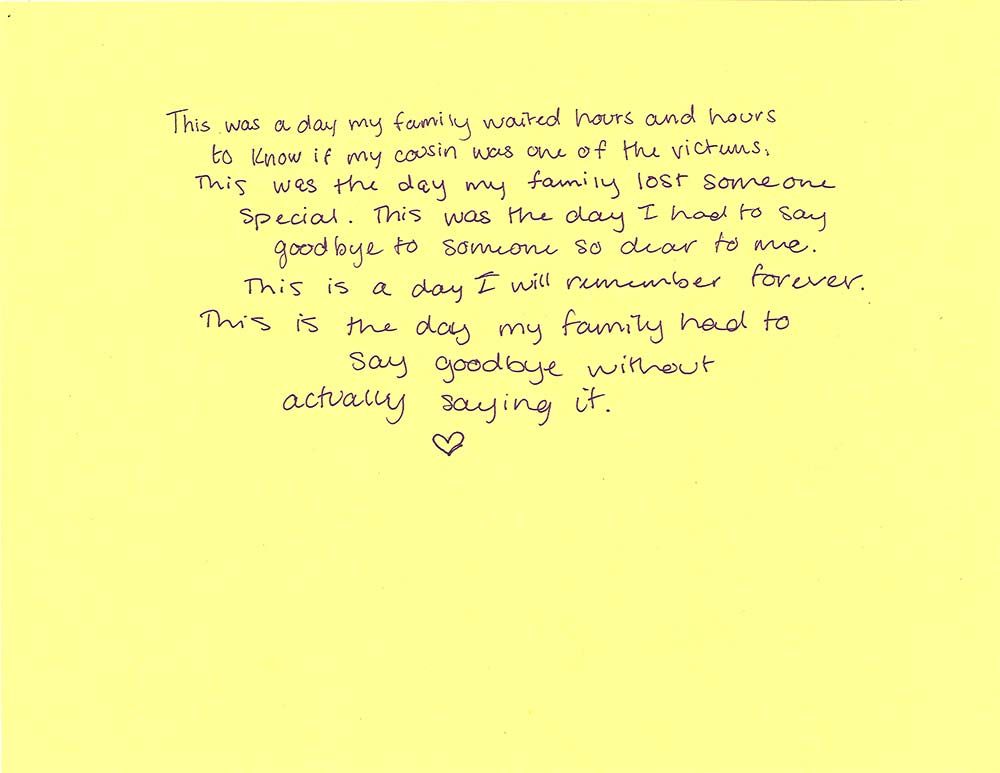 This was a day my family waited hours and hours
to know if my cousin was one of the victims.
This was the day my family lost someone
special. This was the day I had to say
goodbye to someone so dear to me.
This is a day I will remember forever.
This is the day my family had to
say goodbye without
actually saying it.
♡